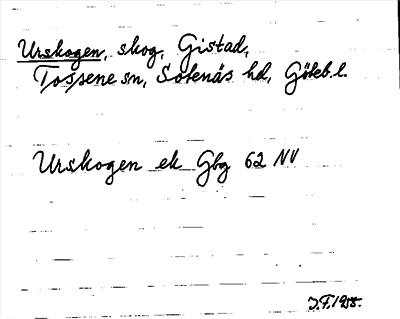 Urskogen, skog, Gistad,
Tossene sn, Sotenäs hd, Göteb.l.
Urskogen ek Gbg 62 NV
J.F. 1958.